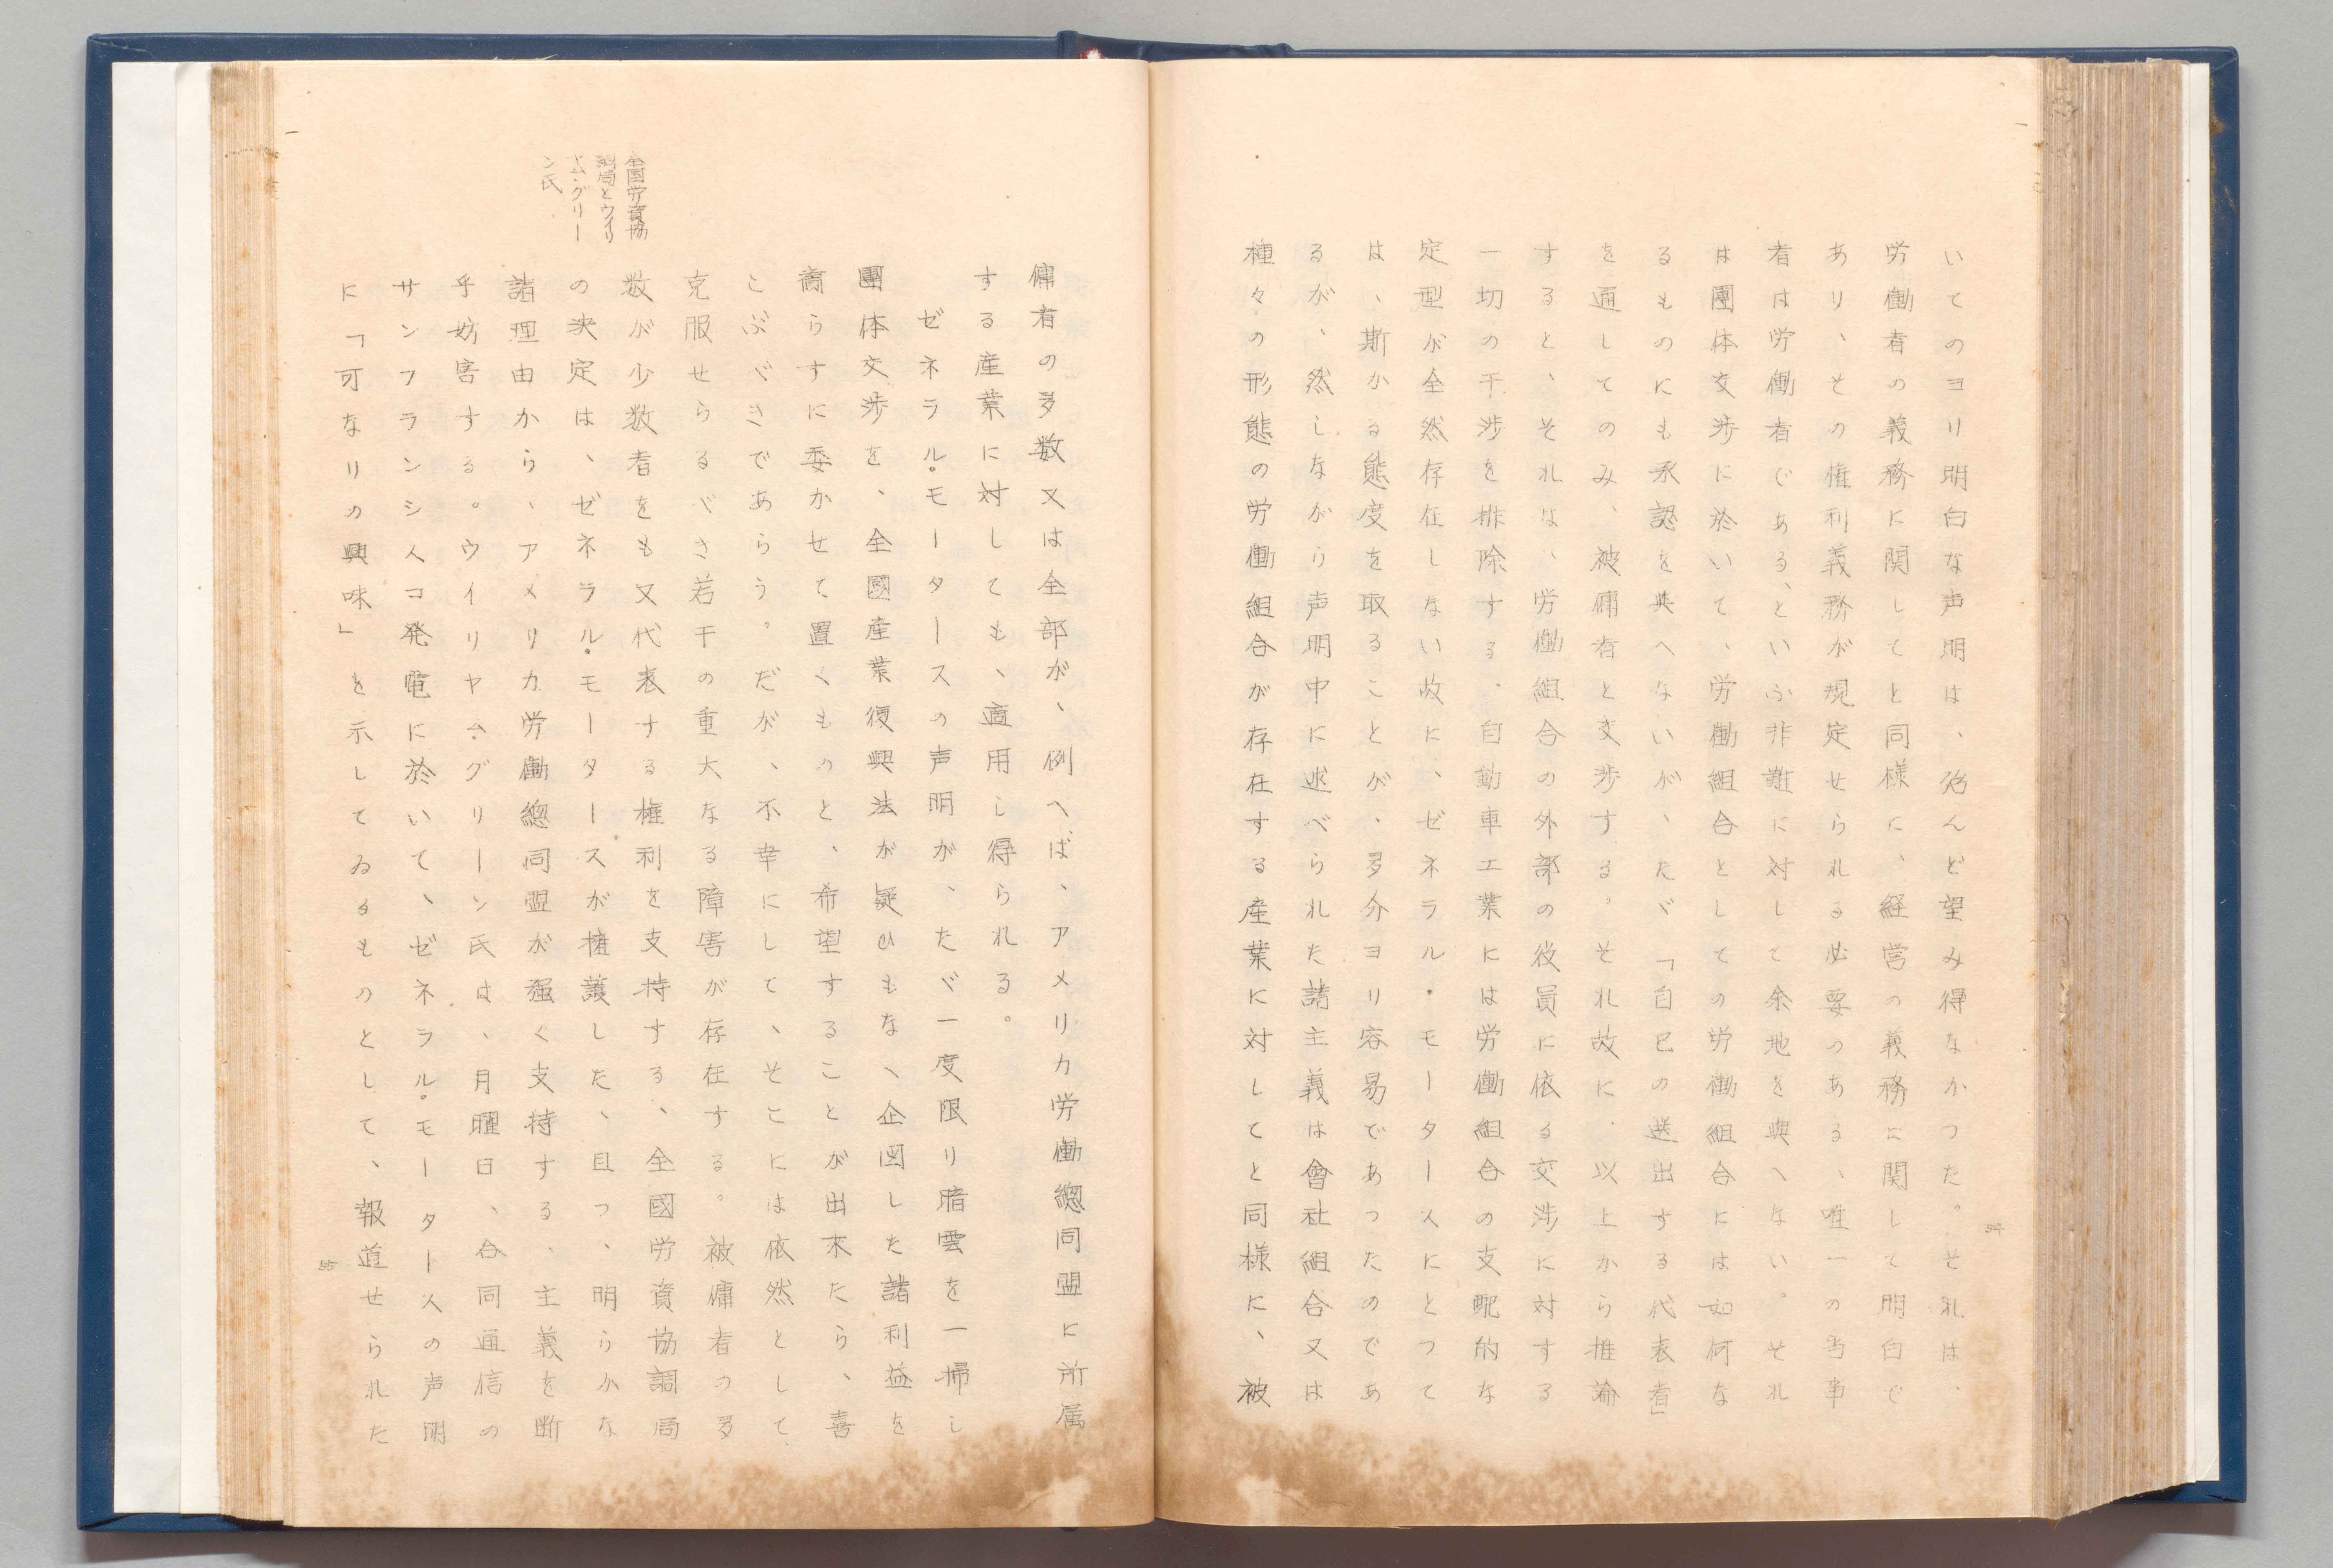 いてのヨリ明白な声明は、殆んど望み得なかつた。それは、
労働者の義務に関してと同様に、経営の義務に関して明白で
あり、その権利義務が規定せられる必要のある、唯一の当事
者は労働者である、といふ非難に対して余地を與へない。それ
は團体交渉に於いて、労働組合としての労働組合には如何な
るものにも承認を與へないが、たゞ「自己の選出する代表者」
を通してのみ、被傭者と交渉する。それ故に、以上から推論
すると、それは、労働組合の外部の役員に依る交渉に対する
一切の干渉を排除する。自動車工業には労働組合の支配的な
定型が全然存在しない故に、ゼネラル・モータースにとつて
は、斯かる態度を取ることが、多分ヨリ容易であつたのであ
るが、然しながら声明中に述べられた諸主義は會社組合又は
種々の形態の労働組合が存在する産業に対してと同様に、被
54
傭者の多数又は全部が、例へば、アメリカ労働總同盟に所属
する産業に対しても、適用し得られる。
ゼネラル・モータースの声明が、たゞ一度限り暗雲を一掃し
團体交渉を、全國産業復興法が疑ひもなく企図した諸利益を
齎らすに委かせて置くものと、希望することが出来たら、喜
こぶべきであらう。だが、不幸にして、そこには依然として、
克服せらるべき若干の重大なる障害が存在する。被傭者の多
数が少数者をも又代表する権利を支持する、全國労資協調局
の決定は、ゼネラル・モータースが擁護した、且つ、明らかな
諸理由から、アメリカ労働總同盟が強く支持する、主義を断
乎妨害する。ウイリヤム・グリーン氏は、月曜日、合同通信の
サンフランシスコ発電に於いて、ゼネラル・モータースの声明
に「可なりの興味」を示してゐるものとして、報道せられた
全国労資協
調局とウイリ
ヤム・グリー
ン氏
55